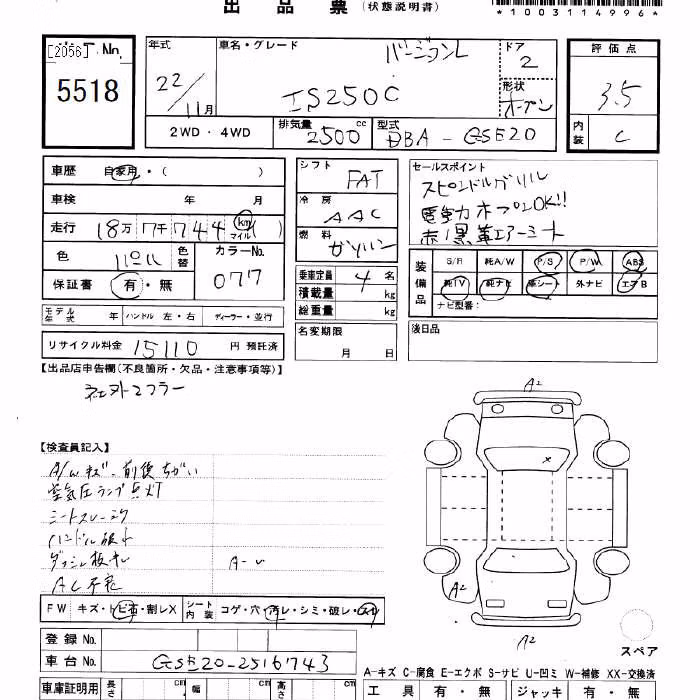 出品票(状態説明書)
*1003114996*
[2056] No.
5518
年式 22/11月
車名・グレード バージョンL
IS250C
ドア 2
形状 オープン
評価点 3.5
内装 C
2WD・4WD
排気量 2500cc
型式 DBA-GSE20
車歴 自家用・( )
車検 年 月
走行 18万7千744(km マイル)
色 パール
色替
カラーNo. 077
保証書 有・無
シフト FAT
冷房 AAC
燃料 ガソリン
乗車定員 4名
積載量 kg
総重量 kg
セールスポイント
スピンドルグリル
電動オープンOK!!
赤/黒革エアーシート
装備品
S/R 純A/W P/S P/W ABS
純TV 純ナビ 革シート 外ナビ エアB
ナビ型番:
モデル年式 年 ハンドル 左・右 ディーラー・並行
名変期限 月 日
後日品
リサイクル料金 15110 円 預託済
【出品店申告欄(不良箇所・欠品・注意事項等)】
社外マフラー
【検査員記入】
A/Wキズ、前後ちがい
空気圧ランプ点灯
シートスレ
ハンドル
ダッシュ板キレ
AC不充
A-U
A2
A2
A2
FW キズ・トビ石・割レX シート内装 コゲ・穴・汚レ・シミ・破レ・スレ
登録No.
車台No. GSE20-2516743
スペア
A-キズ C-腐食 E-エクボ S-サビ U-凹ミ W-補修 XX-交換済
車庫証明用 長さ cm 幅 cm 高さ cm
工具 有・無 ジャッキ 有・無